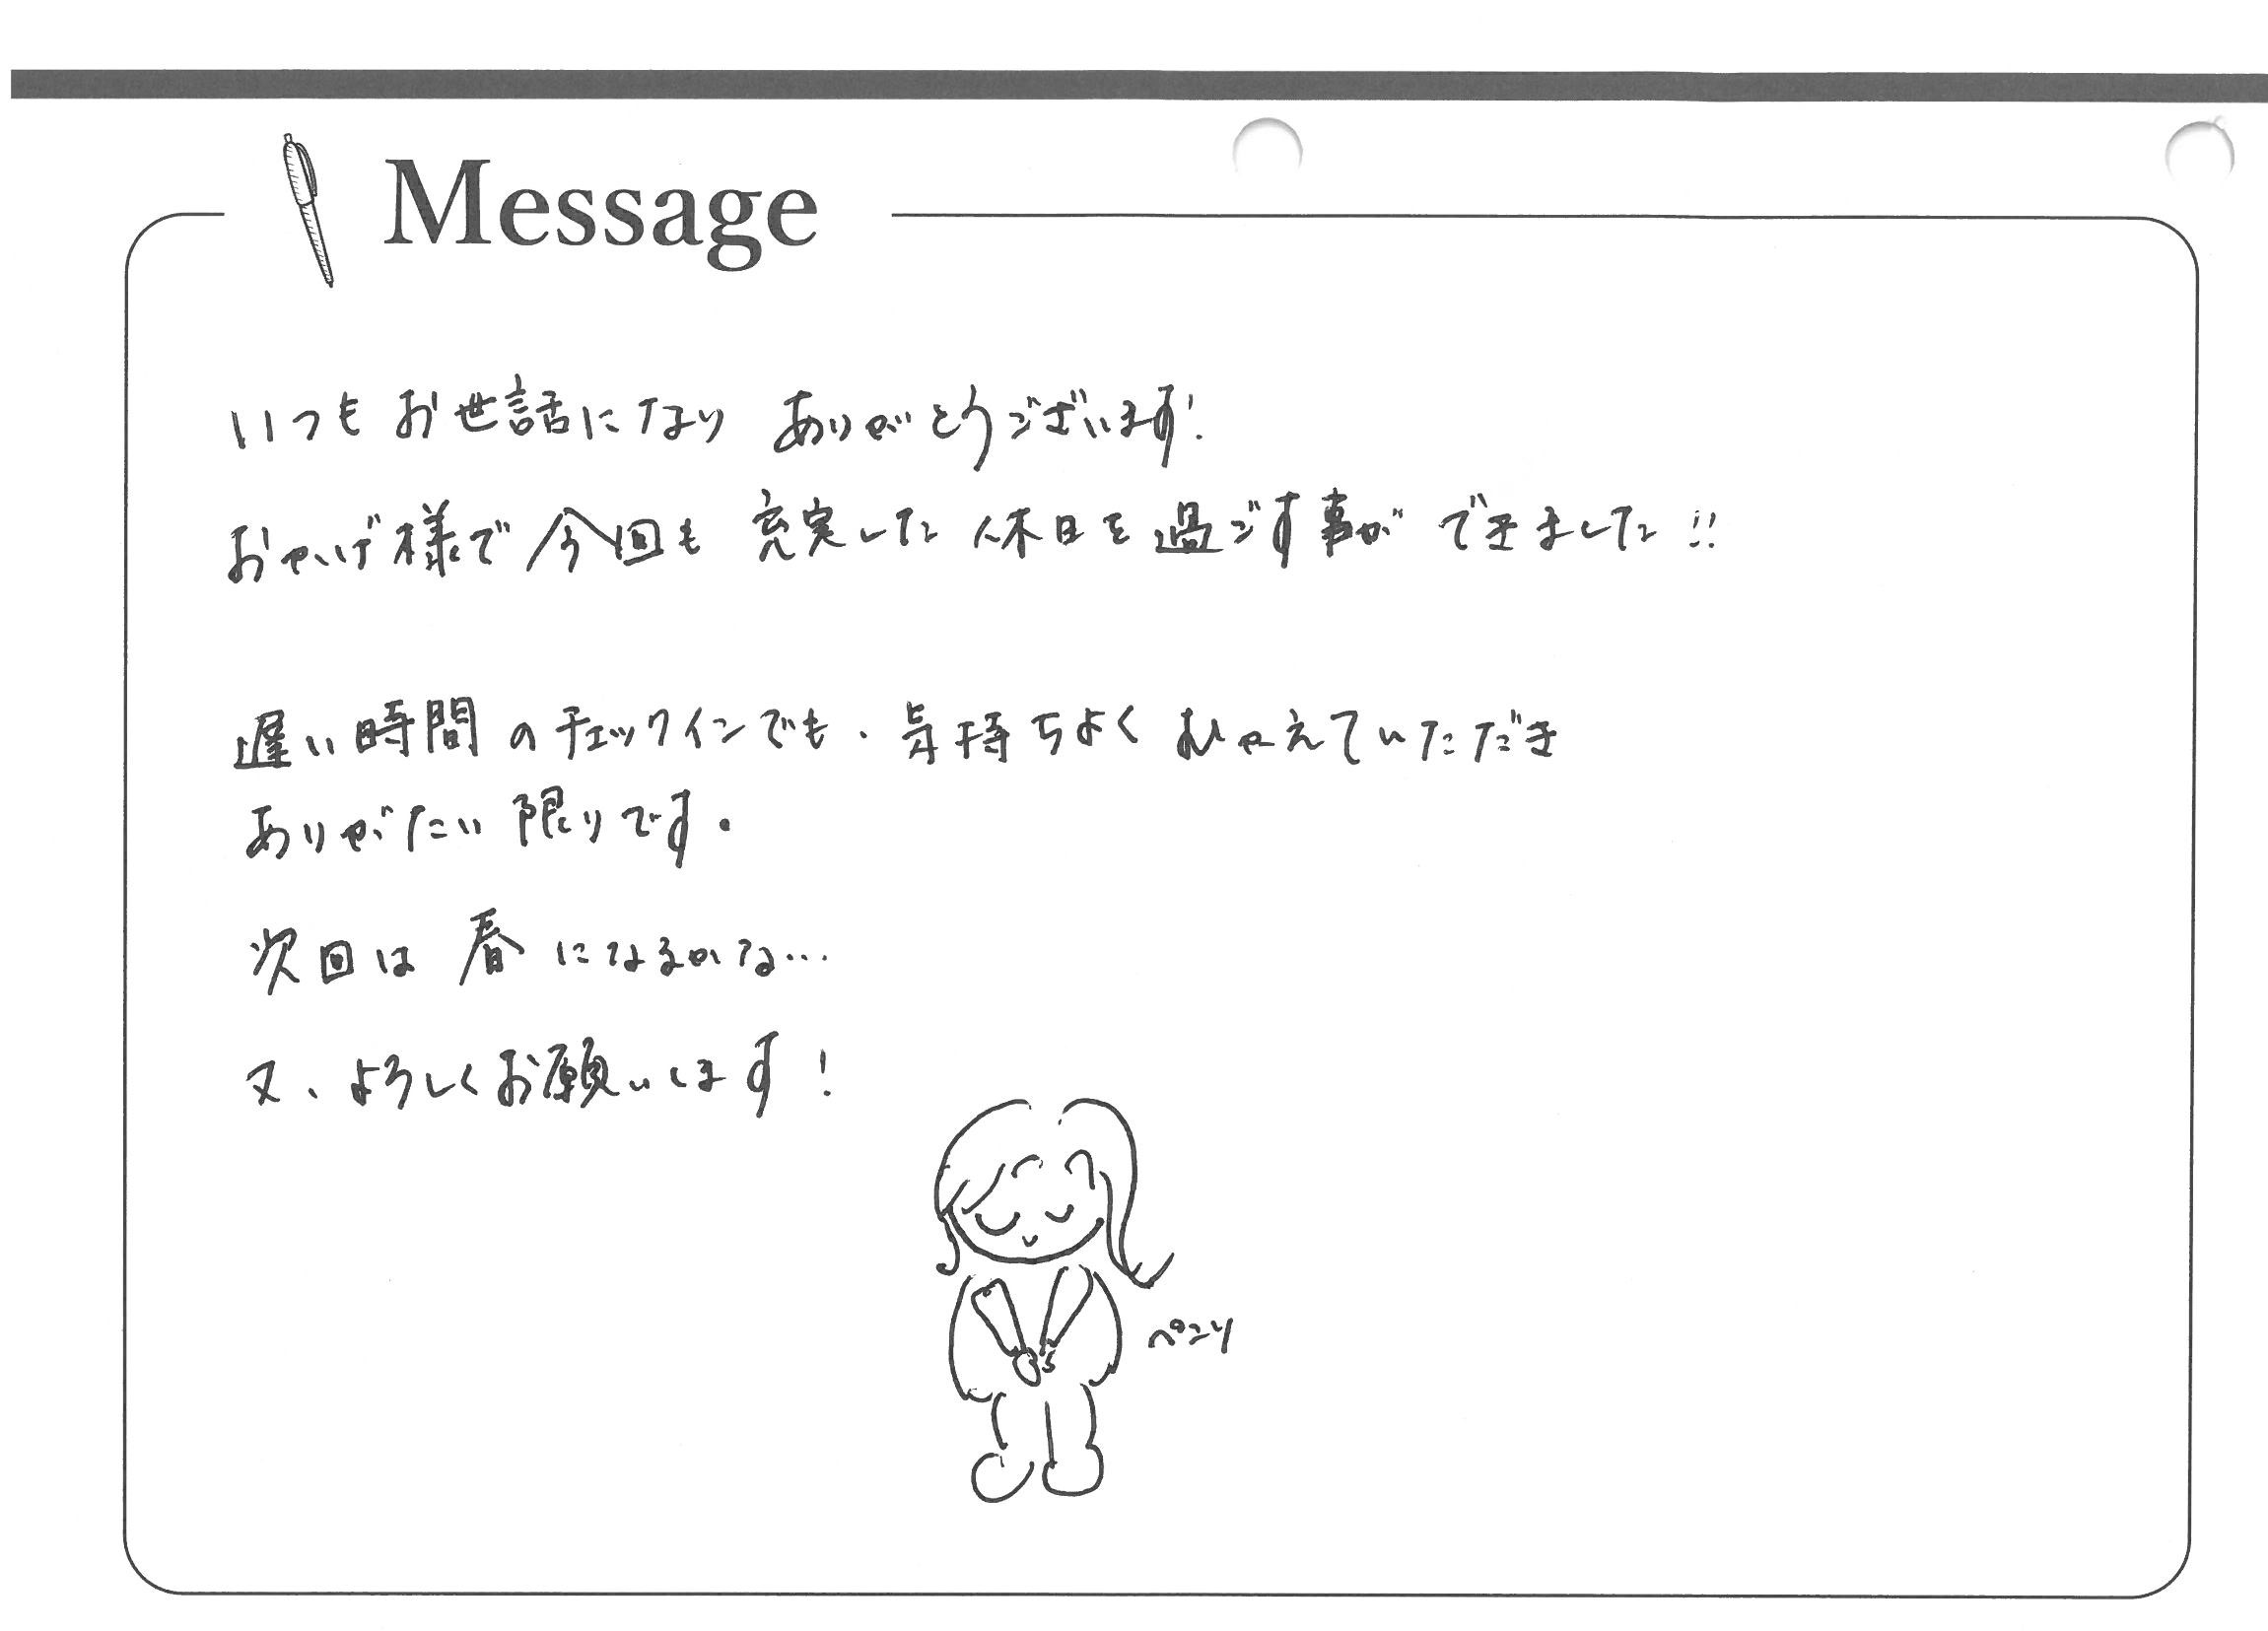 Message
いつもお世話になり ありがとうございます!
おかげ様で今回も 充実した 休日を過ごす事が できました!!
遅い時間のチェックインでも、気持ちよく むかえていただき
ありがたい限りです。
次回は 春になるかな…
又、よろしくお願いします!
ペコリ